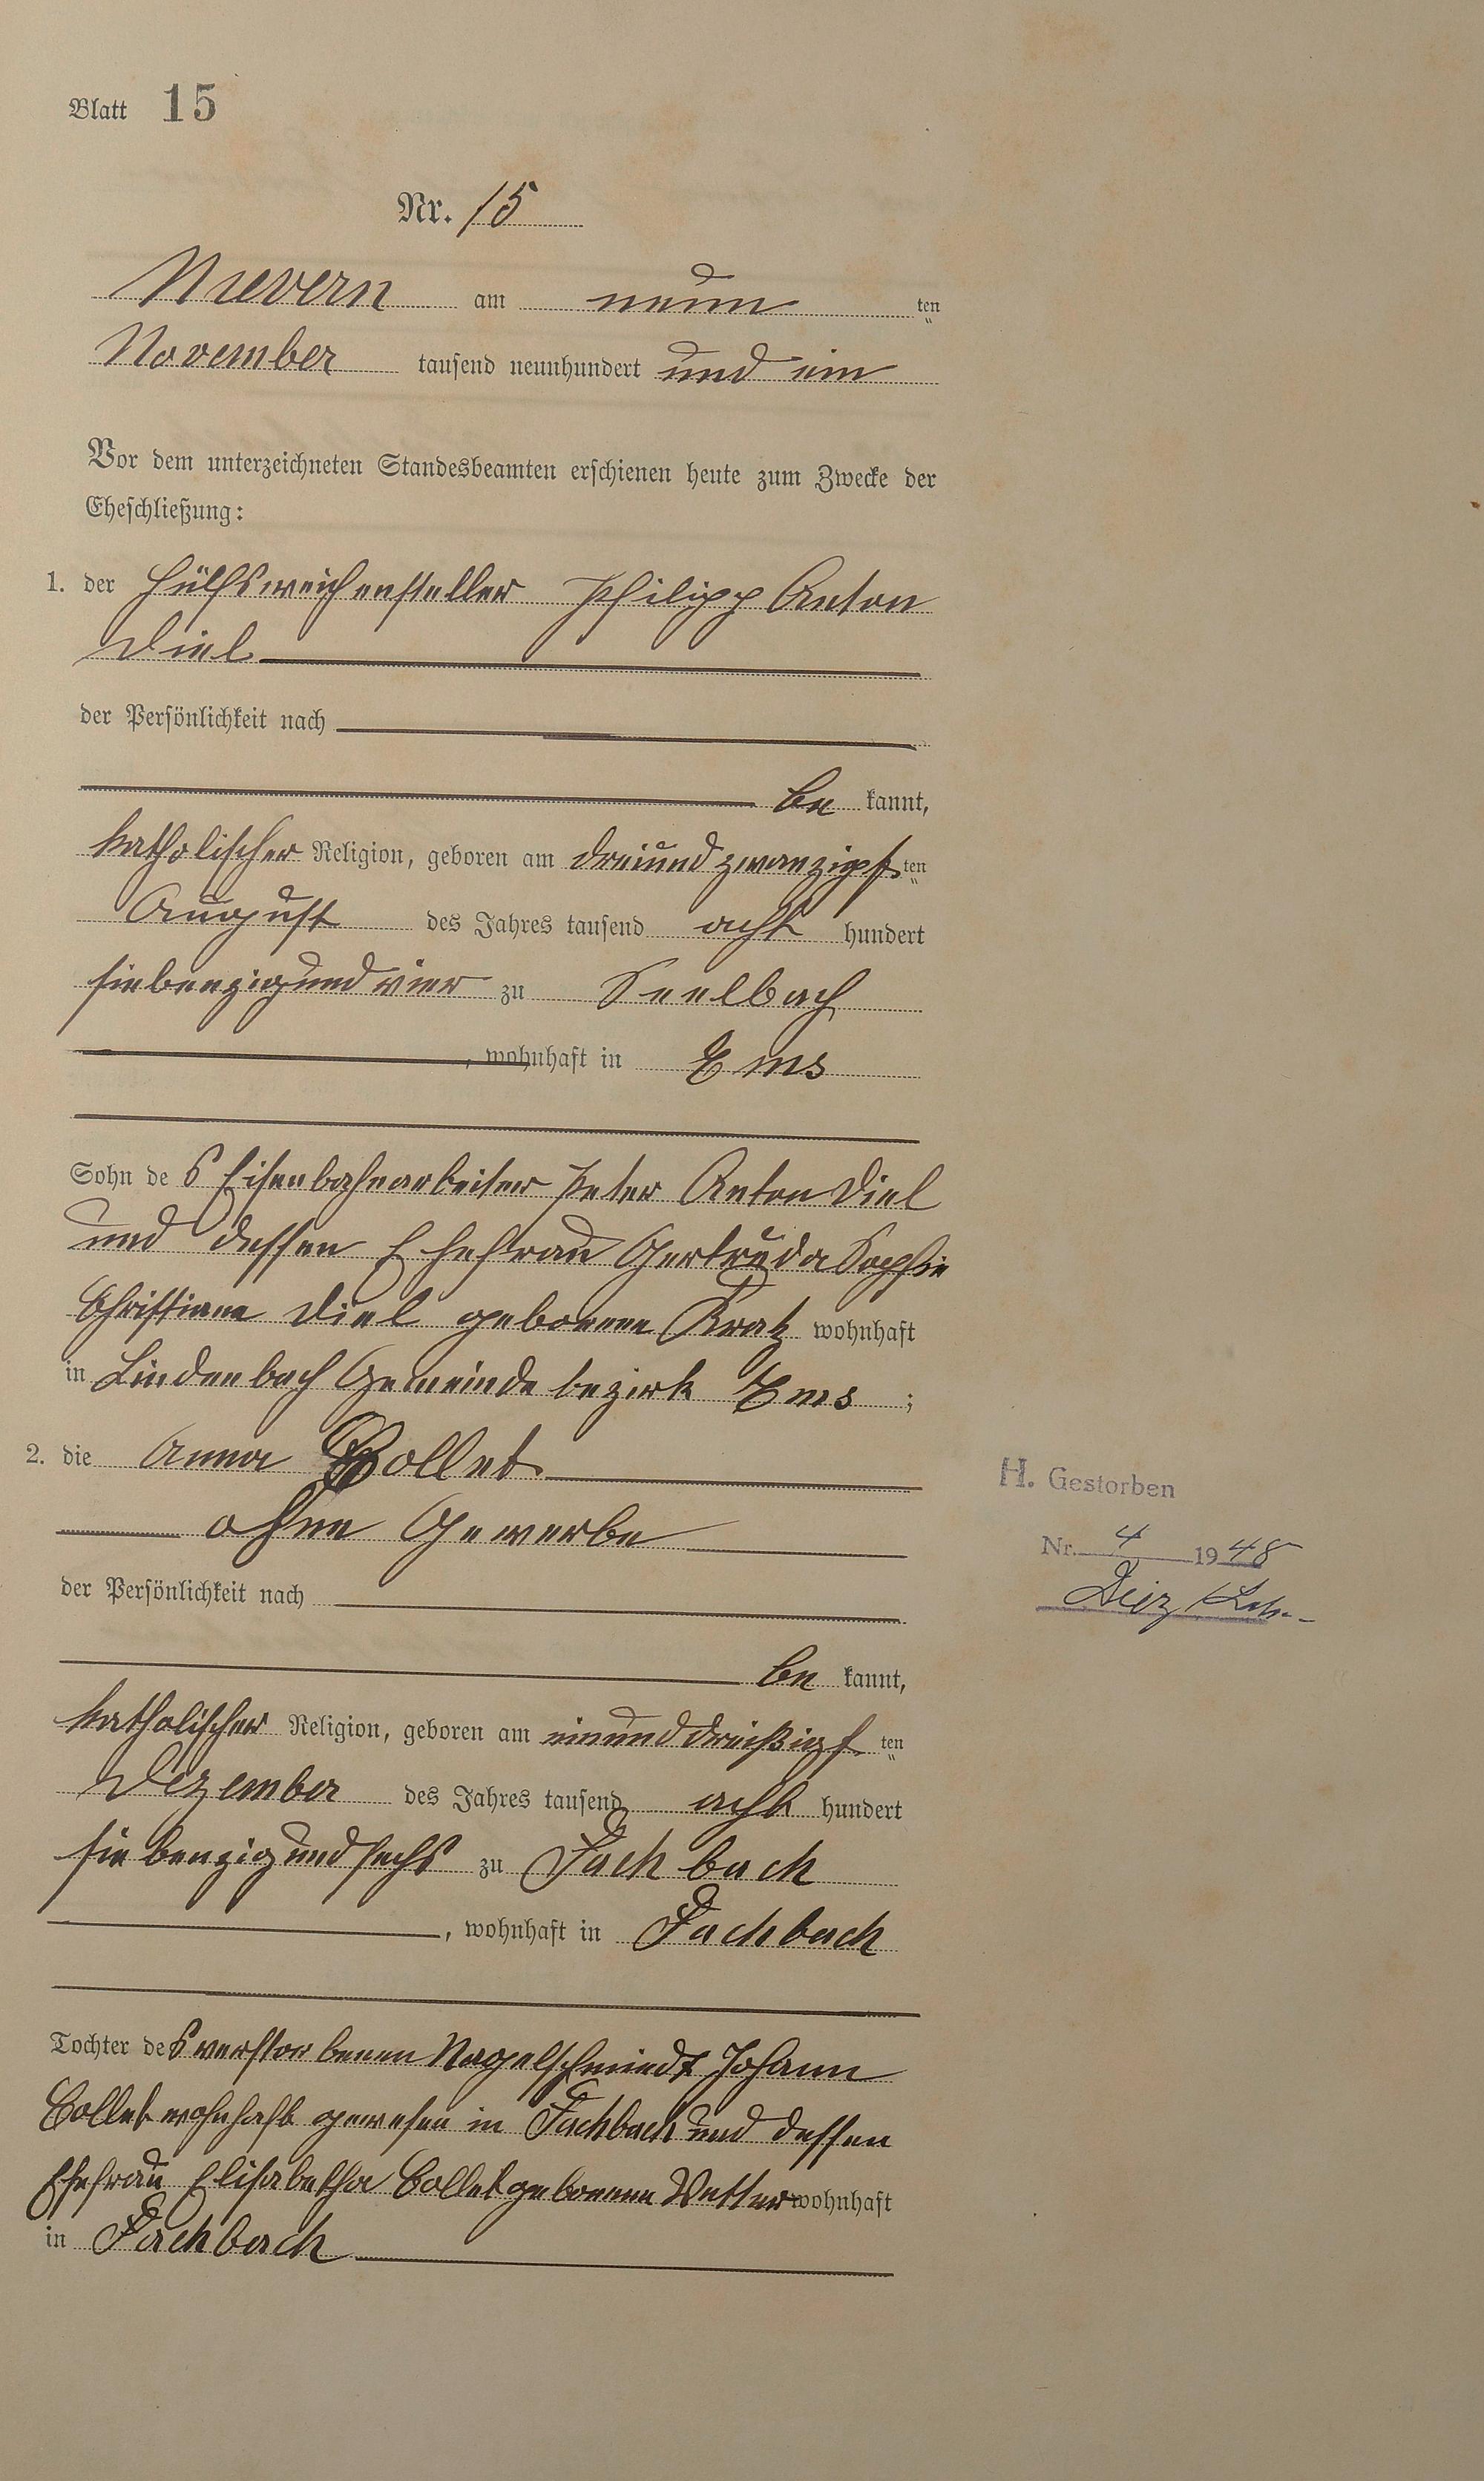 Blatt 15
Nr. 15
Nievern am neun ten
November tausend neunhundert und ein
Vor dem unterzeichneten Standesbeamten erschienen heute zum Zwecke der
Eheschließung:
1. der Hülfsweichensteller Philipp Anton
Diel
der Persönlichkeit nach
be kannt,
katholischer Religion, geboren am dreiundzwanzigsten
August des Jahres tausend acht hundert
siebenzigundvier zu Seelbach
, wohnhaft in Ems
Sohn des Eisenbahnarbeiter Peter Anton Diel
und dessen Ehefrau Gertruda Sophie
Christiane Diel geborenen Kratz wohnhaft
in Lindenbach Gemeindebezirk Ems ;
2. die Anna Collet
ohne Gewerbe
der Persönlichkeit nach
be kannt,
katholischer Religion, geboren am einunddreißigsten
Dezember des Jahres tausend acht hundert
siebenzigundsechs zu Fachbach
, wohnhaft in Fachbach
Tochter des verstorbenen Nagelschmiedt Johann
Collet wohnhaft gewesen in Fachbach und dessen
Ehefrau Elisabetha Collet geborenen Vetter wohnhaft
in Fachbach
H. Gestorben
Nr. 4 1948
Diez